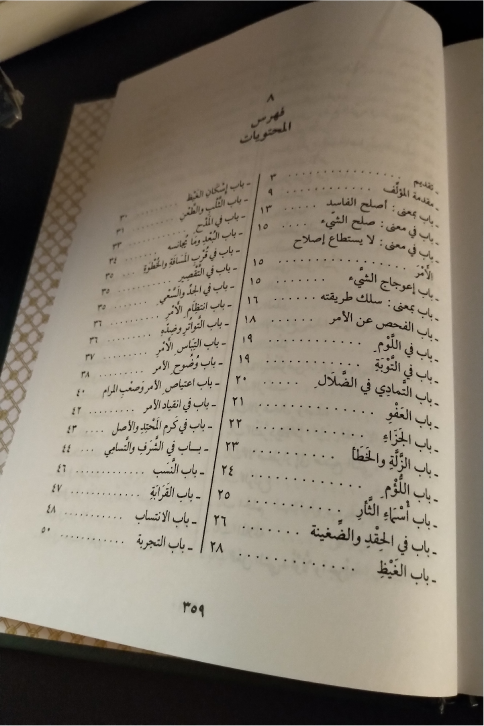 ٨
فهرس
المحتويات
ـ تقديم . . . . . . . . . . . . . . ٣
ـ مقدمة المؤلّف . . . . . . . . ٩
ـ باب بمعنى : أصلح الفاسد . . . . . ١٣
ـ باب في معنى : صلح الشّيء . . . . ١٥
ـ باب في معنى : لا يستطاع إصلاح
الأمْر . . . . . . . . . . . . . ١٥
ـ باب إعوجاج الشَّيء . . . . . . . ١٥
ـ باب بمعنى : سلك طريقته . . . . ١٦
ـ باب الفحص عن الأمر . . . . . . ١٨
ـ باب في اللَّوْمِ . . . . . . . . . . . ١٩
ـ باب في التَّوْبَةِ . . . . . . . . . . . ١٩
ـ باب التَّمادِي في الضَّلَال . . . . . . ٢٠
ـ باب العَفْوِ . . . . . . . . . . . . ٢١
ـ باب الجَزَاءِ . . . . . . . . . . . . ٢٢
ـ باب الزَّلَّةِ والخَطَأْ . . . . . . . . . ٢٣
ـ باب اللُّؤْمِ . . . . . . . . . . . . ٢٤
ـ باب أَسْمَاءِ الثَّأْرِ . . . . . . . . . . ٢٥
ـ باب في الحِقْدِ والضَّغينة . . . . . . . ٢٦
ـ باب الغَيْظِ . . . . . . . . . . . . ٢٨
ـ باب إسْكَان الغَيْظ . . . . . . . ٣٠
ـ باب الثَّلْب والطَّعْن . . . . . . . ٣١
ـ باب في المَدْحِ . . . . . . . . . . ٣٣
ـ باب البُعْدِ وَمَا يُجانسه . . . . . . ٣٤
ـ باب في قُرْبِ المَسَافَةِ والخُطْوَةِ . . ٣٥
ـ باب في التَّقْصِيرِ . . . . . . . . . ٣٥
ـ باب في الجِدِّ والسَّعْيِ . . . . . . . ٣٥
ـ باب انتظام الأمْرِ . . . . . . . . ٣٦
ـ باب التَّواتُرِ وضِدِّهِ . . . . . . . . ٣٦
ـ باب التِبَاسِ الأمْرِ . . . . . . . . ٣٧
ـ باب وُضُوحِ الأمْرِ . . . . . . . . ٣٨
ـ باب اعتياص الأمر وَصَعْبِ المرام ٤٠
ـ باب في انقياد الأمر . . . . . . . ٤٢
ـ باب في كَرَم المَحْتِدِ والأصل . . . ٤٣
ـ بـاب في الشَّرَف والتَّسامِي . . . ٤٤
ـ باب النَّسَب . . . . . . . . . . . ٤٦
ـ باب القَرَابَةِ . . . . . . . . . . . ٤٧
ـ باب الانتساب . . . . . . . . . ٤٨
ـ باب التجربة . . . . . . . . . . ٥٠
٣٥٩